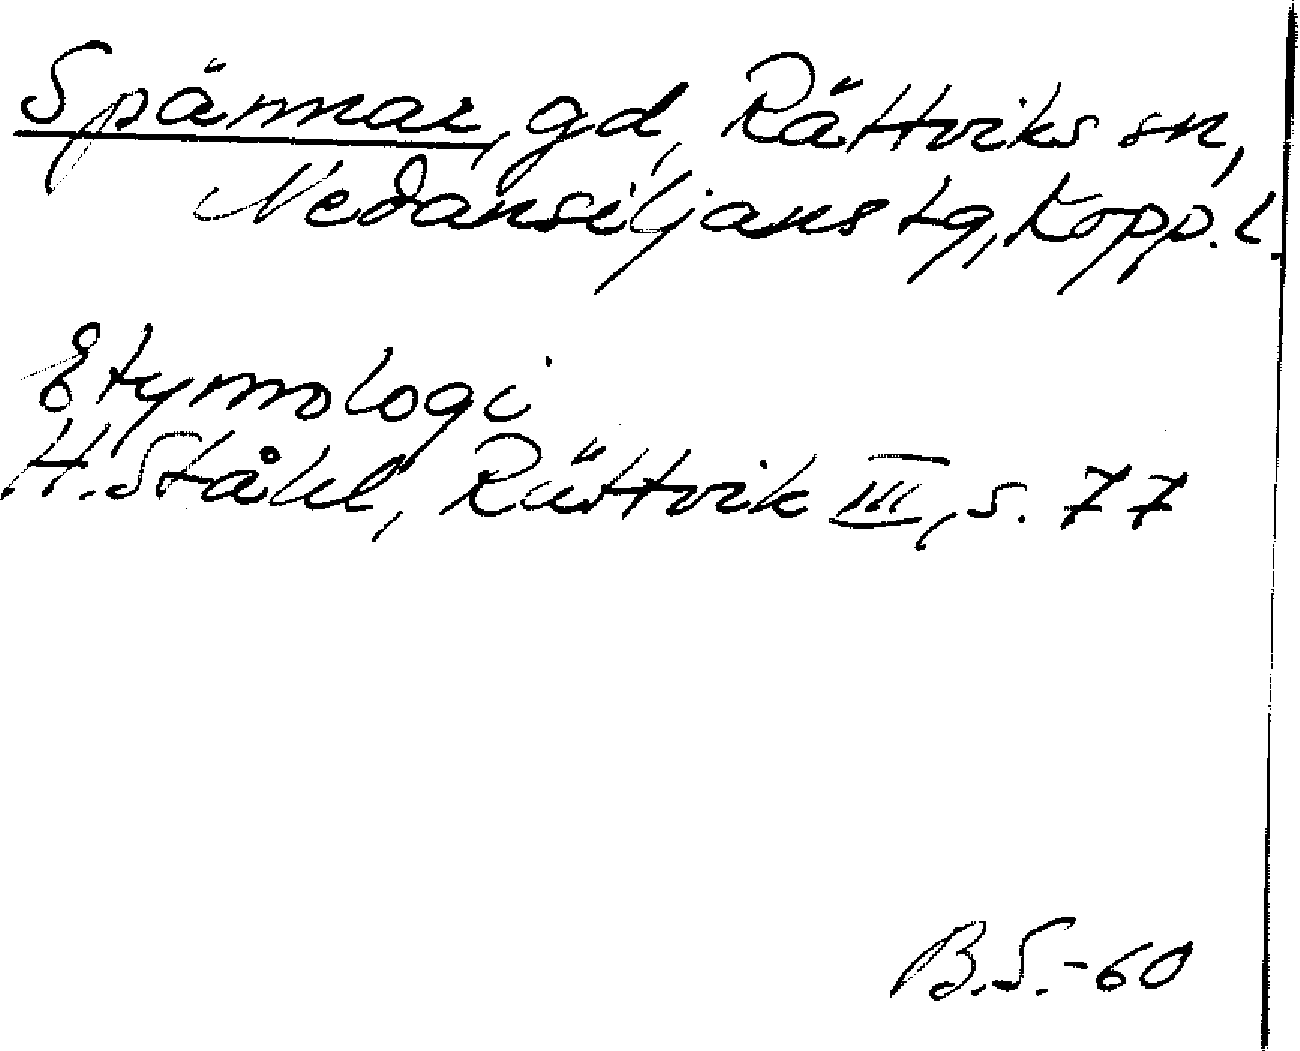 Spännar, gd, Rättviks sn,
Nedansiljans tg, Kopp. l.
Etymologi
H. Ståhl, Rättvik III, s. 77
B.S.-60